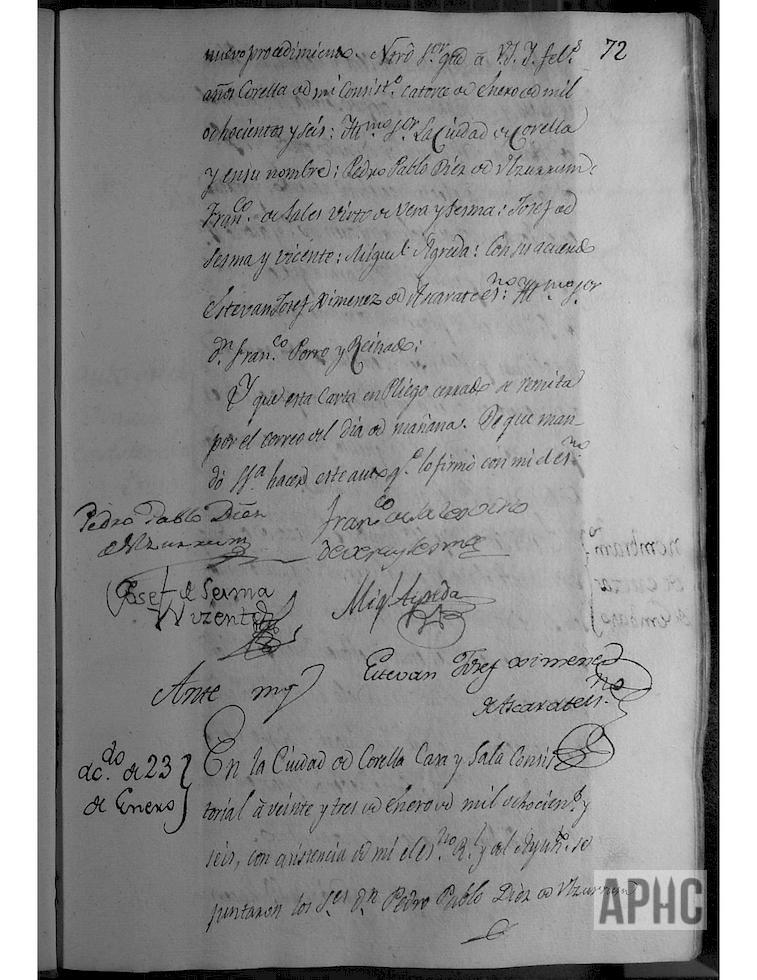 72
nuevo procedimiento. Nrõ Sr. gũe ã V.S.I. fels.
años Corella de mi Consistº. catorce de Enero de mil
ochocientos y seis: Illmo. Sor. La Ciudad de Corella
y en su nombre: Pedro Pablo Diez de Ulzurrum:
Franco. de Sales Virto de Vera y Sesma: Josef de
Sesma y Vicente: Miguel Agreda: Con su acuerdo
Estevan Josef Ximenez de Ascarate esno: Illmo Sor
Dn. Franco. Porro y Reinado:
Y que esta Carta en Pliego cerrado se remita
por el correo del dia de mañana. De que man-
dó SSª. hacer este auto qe. lo firmó con mi el esno.
Pedro Pablo Diez
de Ulzurrum
Franco. de Sales Virto
de Vera y Sesma
Josef de Sesma
y Vizente
Migl. Agreda
Ante my
Estevan Josef Ximenez
de Ascarate esno.
Acdo. de 23
de Enero
En la Ciudad de Corella Cara y Sala Consis-
torial ã veinte y tres de Enero de mil ochocientos y
seis, con asistencia de mi el esno. Rl. y del Ayunto. se
juntaron los Sres. Dn. Pedro Pablo Diez de Ulzurrum
APHC